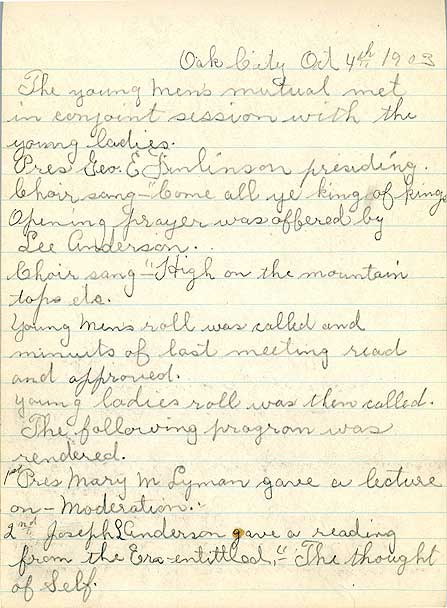 Oak City Oct 4th 1903
The young mens mutual met
in conjoint session with the
young ladies.
Pres Geo. E Finlinson presiding.
Choir sang "Come all ye king of kings
Opening prayer was offered by
Lee Anderson.
Choir sang "High on the mountain
tops etc.
Young mens roll was called and
minuits of last meeting read
and approved.
young ladies roll was then called.
The following program was
rendered.
1st Pres Mary M Lyman gave a lecture
on - Moderation.
2nd Joseph L Anderson gave a reading
from the Era-entittled, "The thought
of Self.